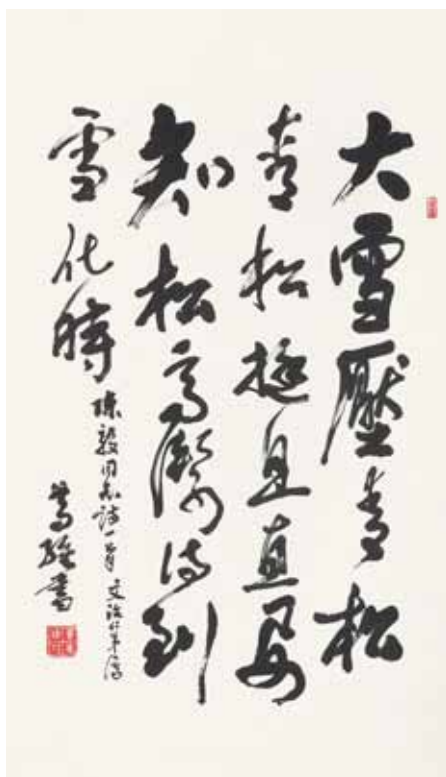 大雪壓青松
青松挺且直要
知松高潔待到
雪化時
陳毅同志詩一首 文治仁弟
書